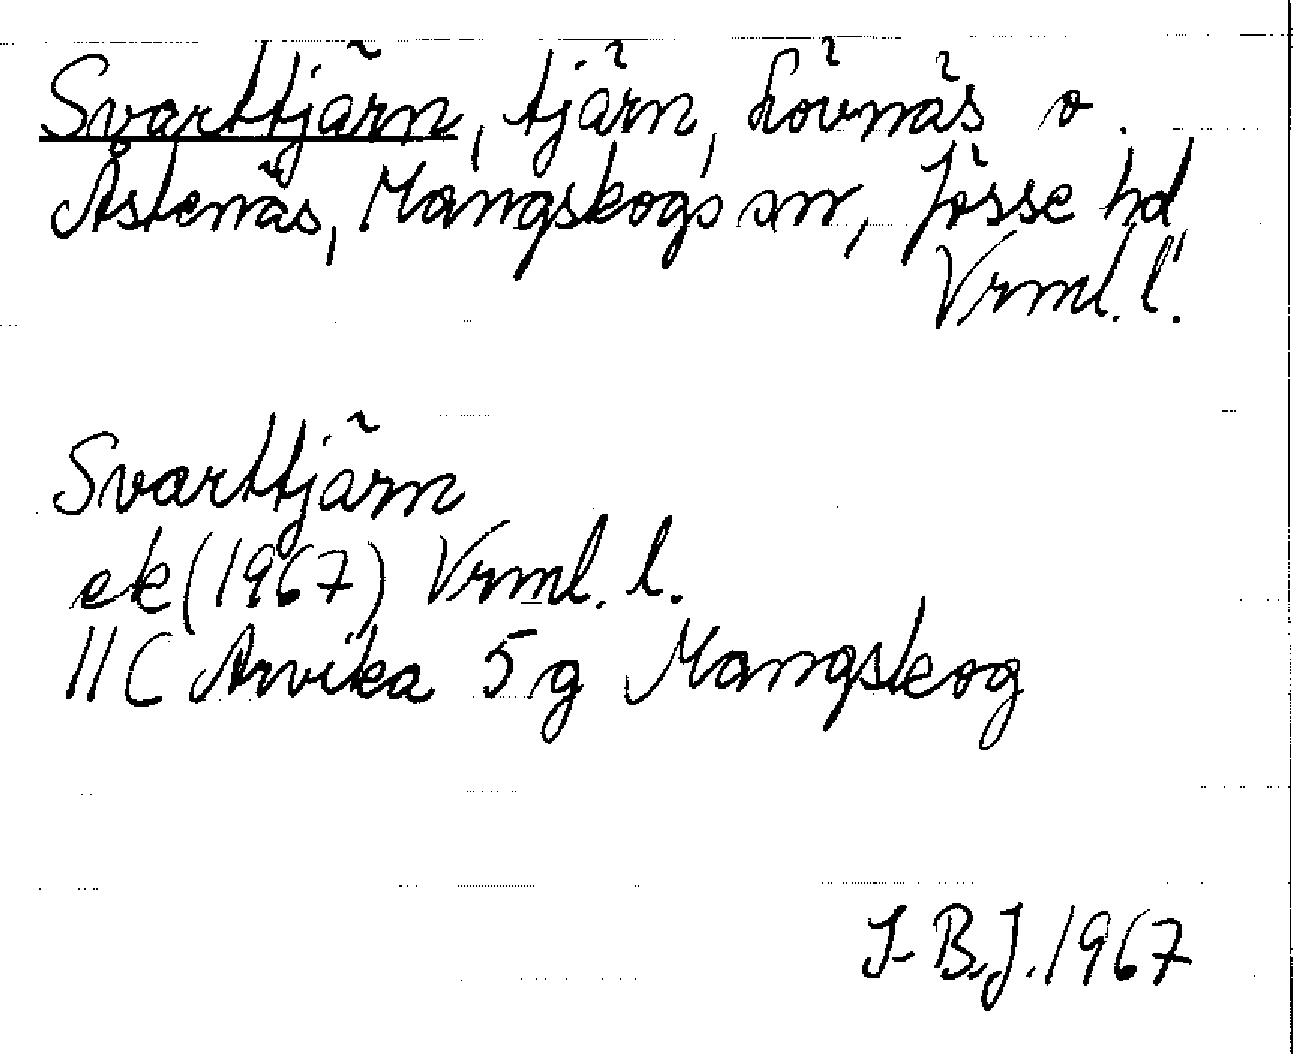 Svarttjärn, tjärn, Lövnäs o.
Åstenäs, Mangskogs sn, Jösse hd
Vrml. l.
Svarttjärn
ek (1967) Vrml. l.
11C Arvika 5 g Mangskog
I-B.J. 1967